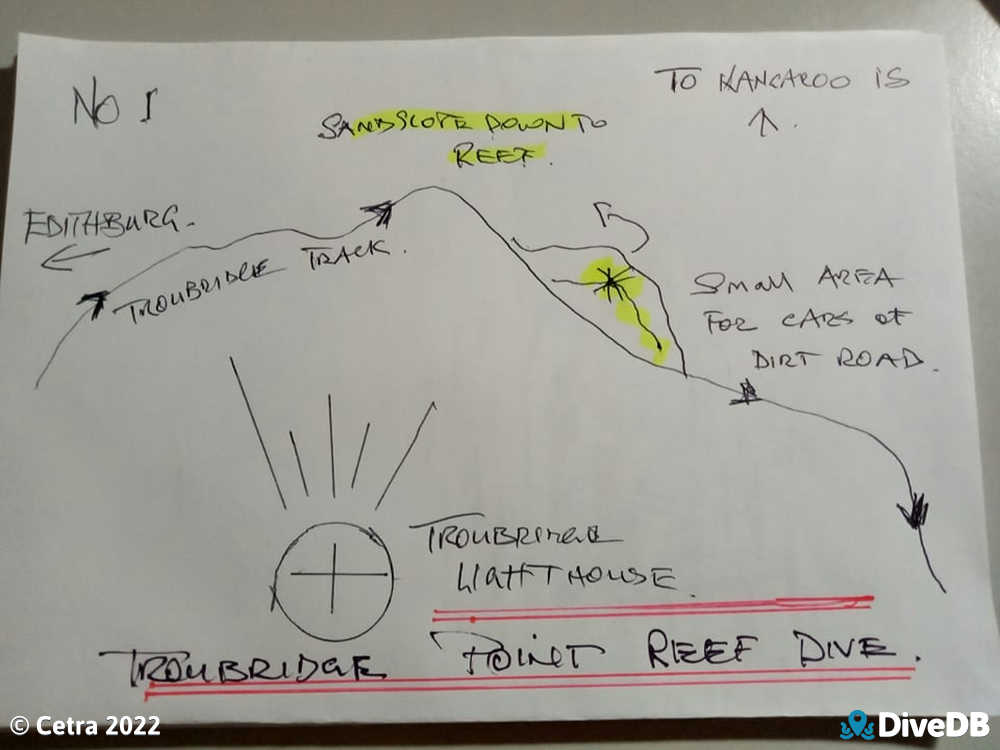 No 1
TO KANGAROO IS
SANDSLOPE DOWN TO
REEF.
EDITHBURG.
TROUBRIDGE TRACK.
Small AREA
FOR CARS of
DIRT ROAD.
TROUBRIDGE
LIGHTHOUSE.
TROUBRIDGE POINT REEF DIVE.
© Cetra 2022
DiveDB